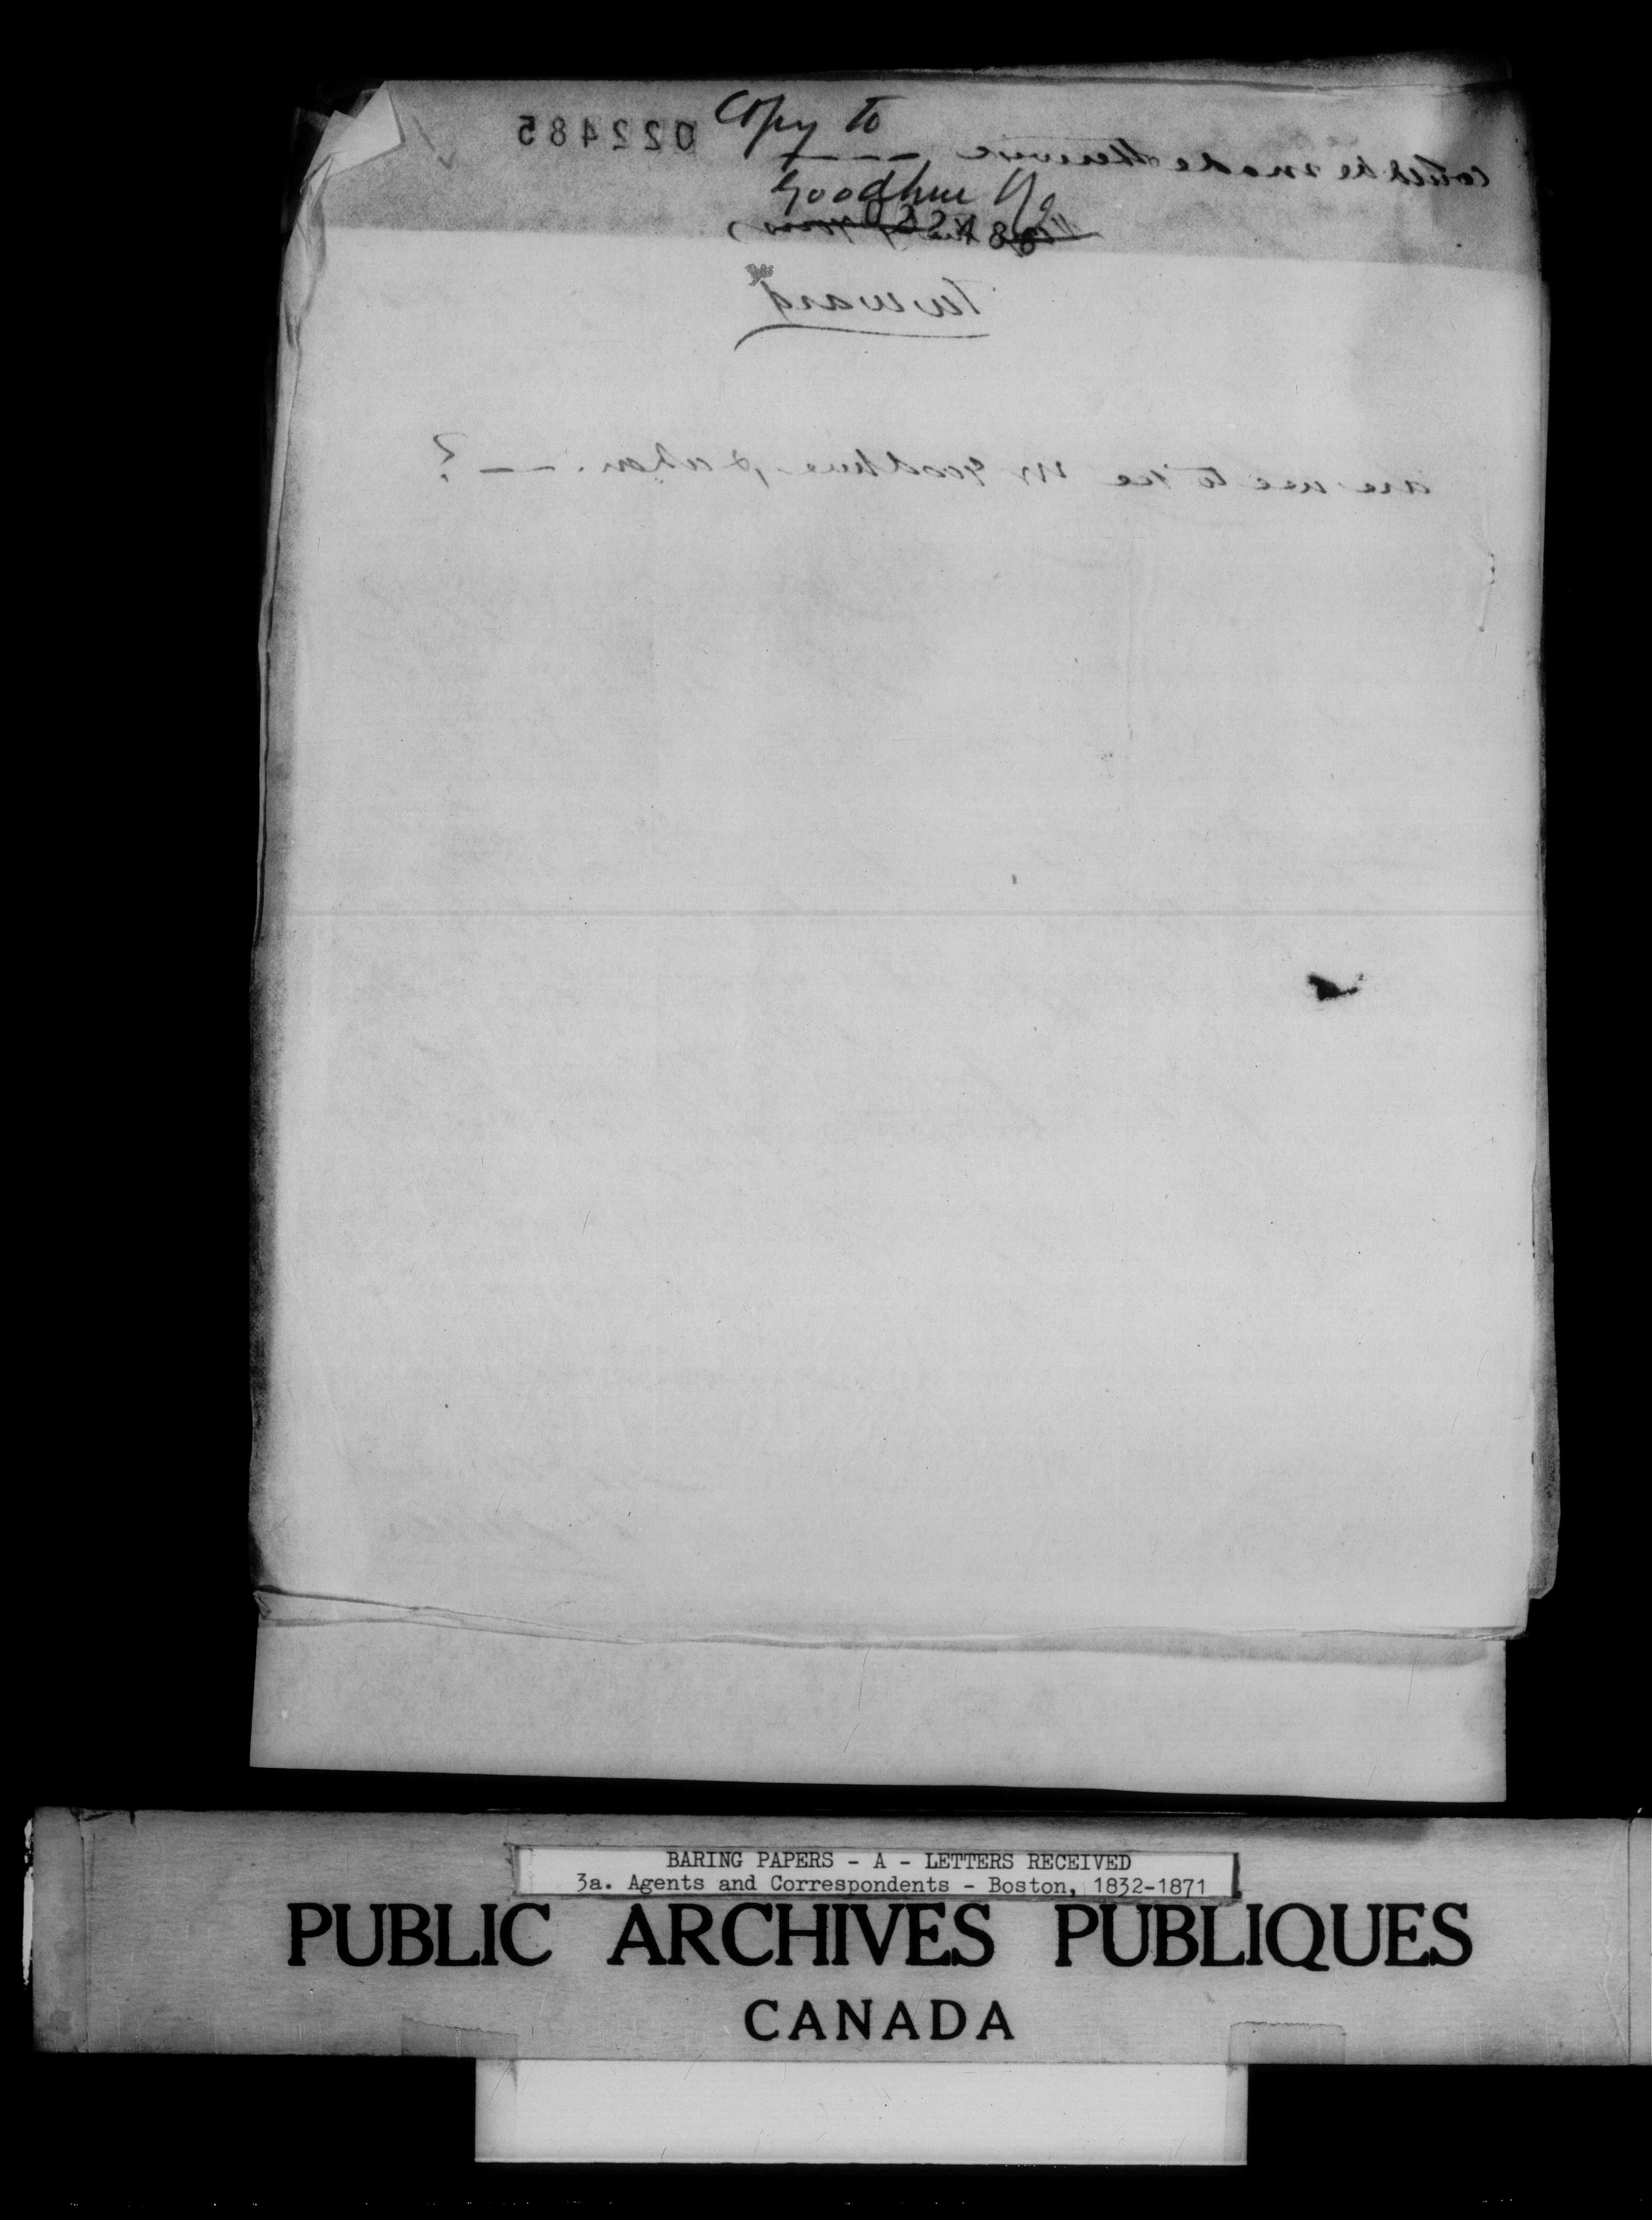 Copy to
022485
could be made otherwise
Goodhue & Co
022486
T W Ward
are we to see Mr Goodhue, & when. — — ?
BARING PAPERS - A - LETTERS RECEIVED
3a. Agents and Correspondents - Boston, 1832-1871
PUBLIC ARCHIVES PUBLIQUES
CANADA